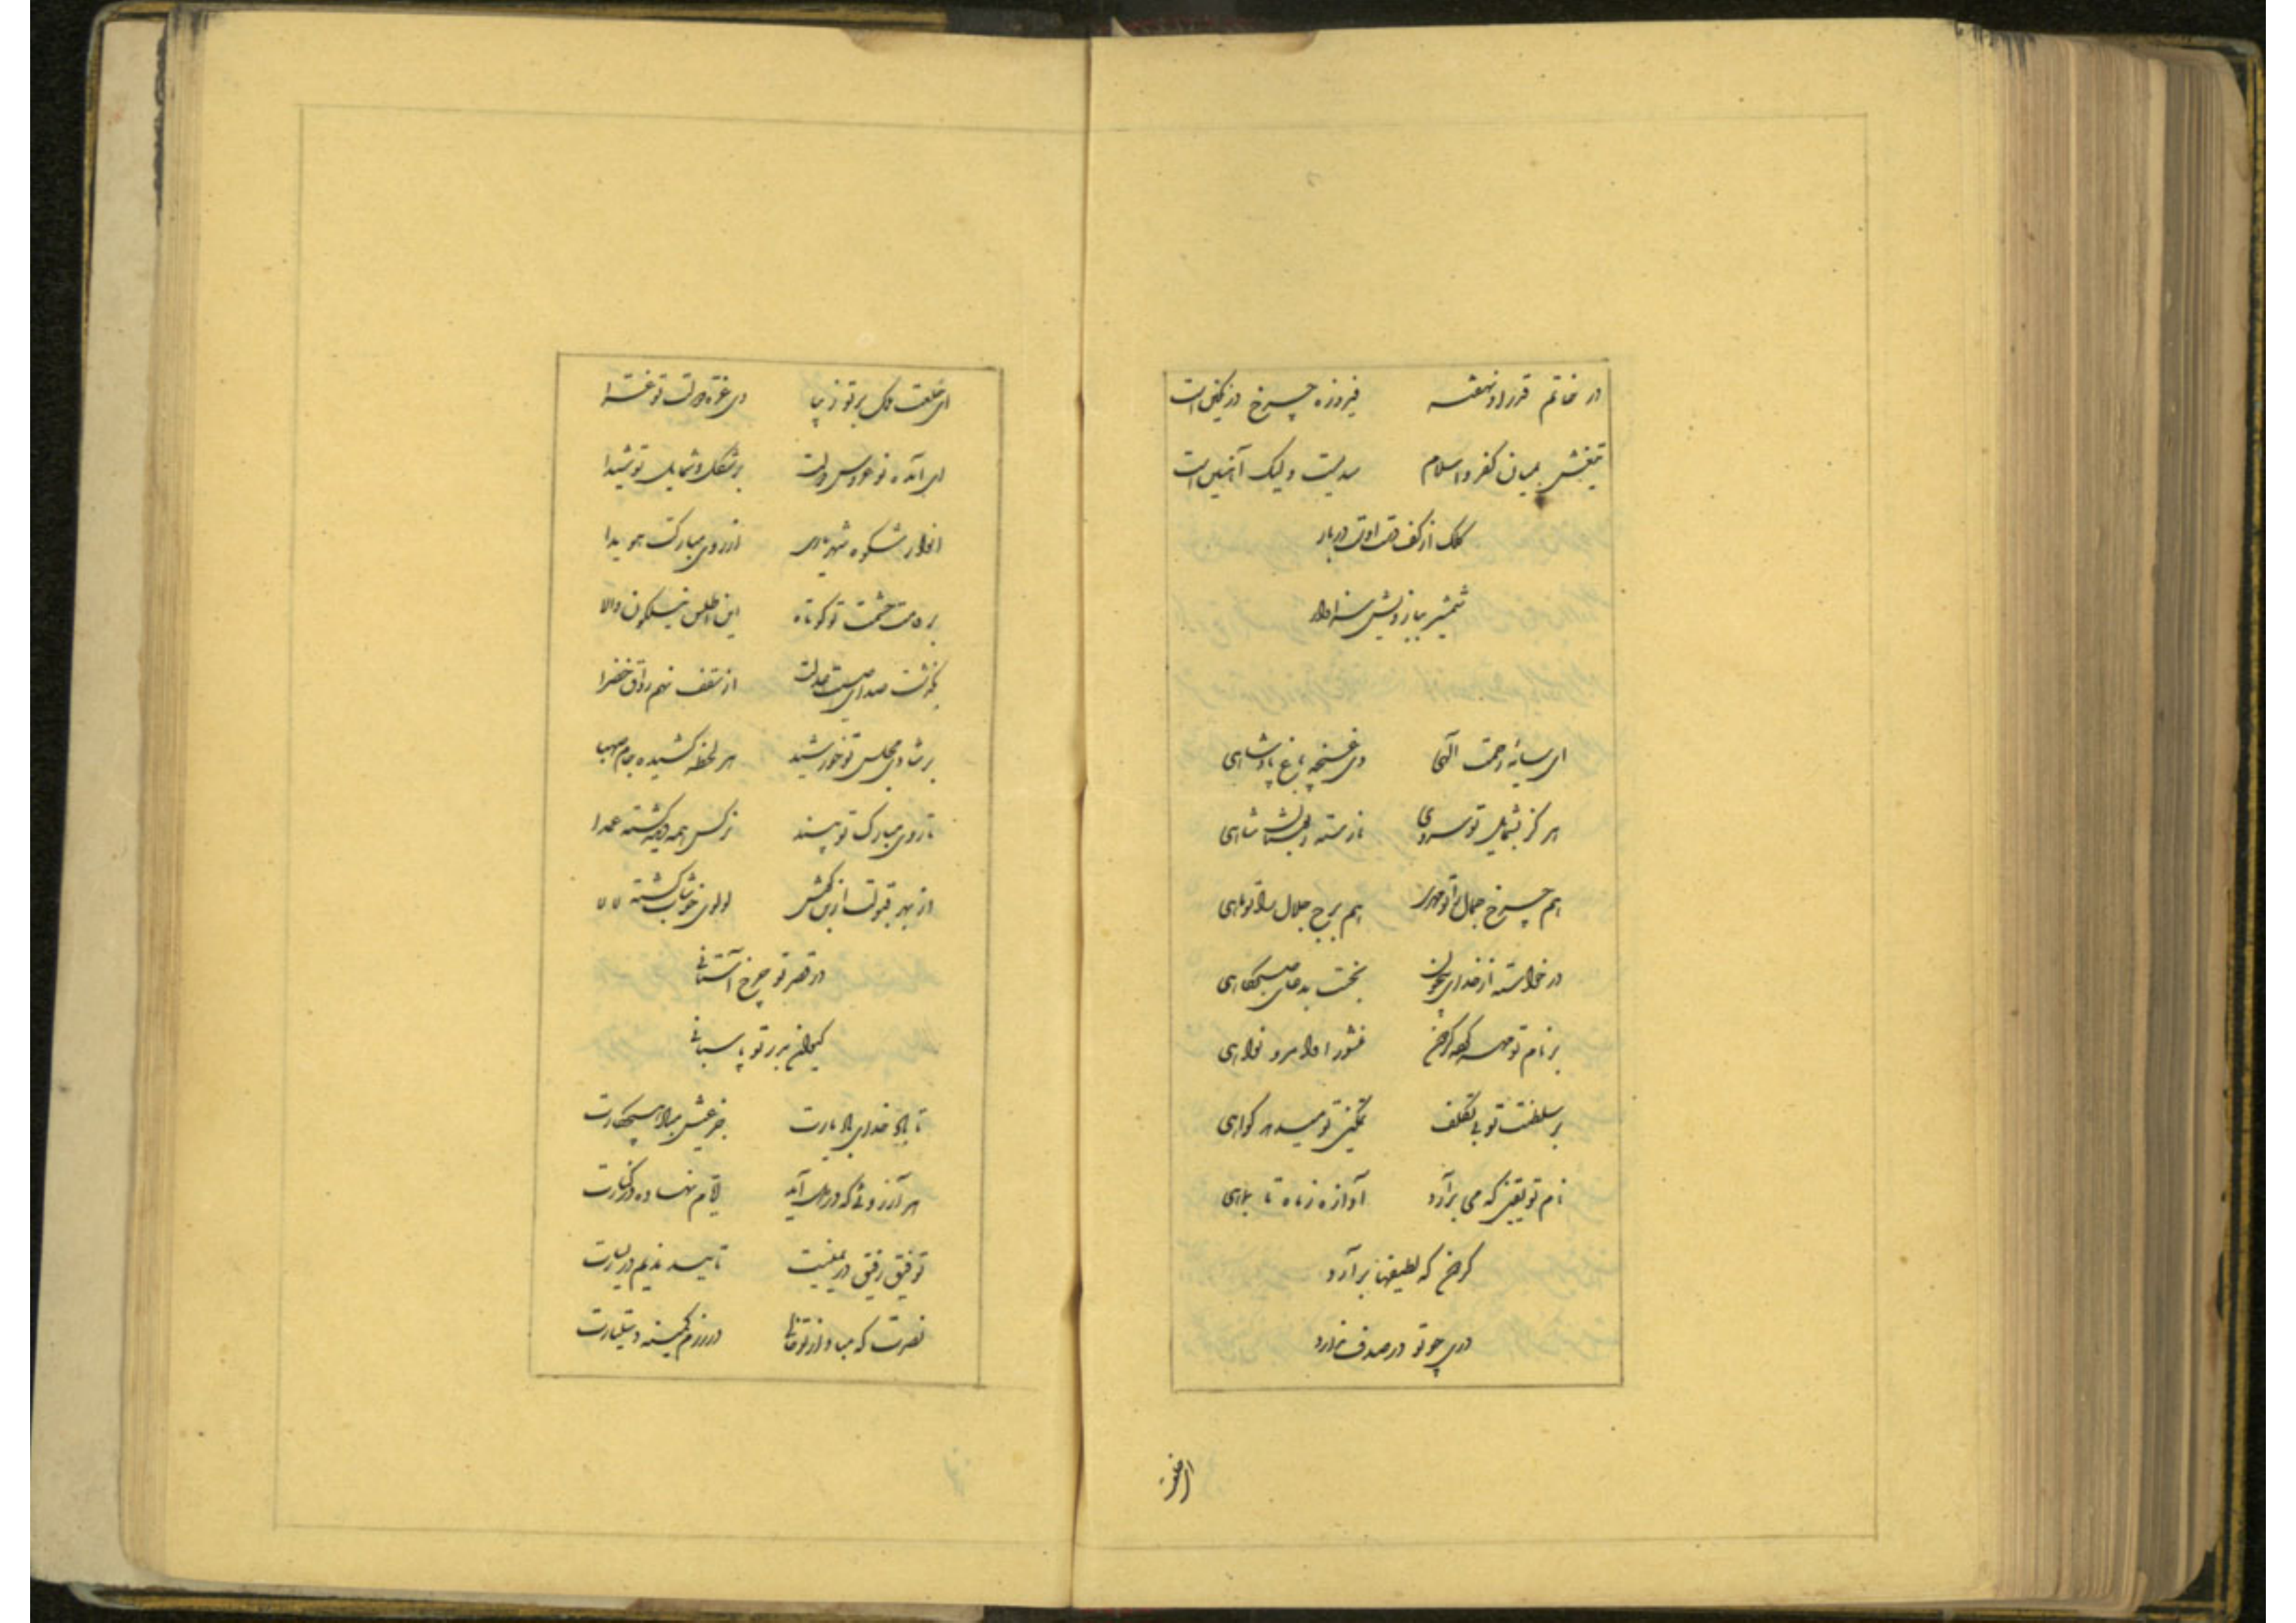 در خاتم قدر او نهفته فیروزه چرخ در نگین است
تیغش بمیان کفر و اسلام سدیست ولیک آهنین است
کلک از کف دست اوست دربار
شمشیر ببازویش سزاوار
ای سایه رحمت الهی وی غنچه باغ پادشاهی
هرگز بشمایل تو سروی نارسته ز بوستان شاهی
هم چرخ جمال را تو مهری هم برج جلال را تو ماهی
در خواسته از خدای بیچون بخت بدعای صبحگاهی
بر نام تو چرخ منشور اوامر و نواهی
بر سلطنت تو بی تکلف تمکین تو میدهد گواهی
نام تو یقین که می برآرد آوازه ز ماه تا بماهی
کرخ که لطیفها برآرد
دری چو تو در صدف ندارد
ای خلعت
ای خلعت ملک بر تو زیبا وی غره دولت تو غرا
ای آمده نوعروس دولت بر شکل و شمایل تو شیدا
انوار شکوه شهریاری از روی مبارکت هویدا
بر قامت حشمت تو کوتاه این اطلس نیلگون والا
بگذشت صدای صیت عدلت از سقف نهم رواق خضرا
بر شادی مجلس تو خورشید هر لحظه کشیده جام صهبا
تا روی مبارک تو بیند نرگس همه دیده گشته عمدا
از بهر قبولت ازین کش لولوی خوشاب گشته لالا
در قصر تو چرخ آستانی
کیوان بر در تو پاسبانی
تا باد خدای باد یارت جز عیش مباد هیچ کارت
هر آرزوئی که در دل آید ایام نهاده در کنارت
توفیق رفیق در یمینت تایید ندیم در یسارت
نصرت که مباد از تو خالی در رزم کمینه دستیارت